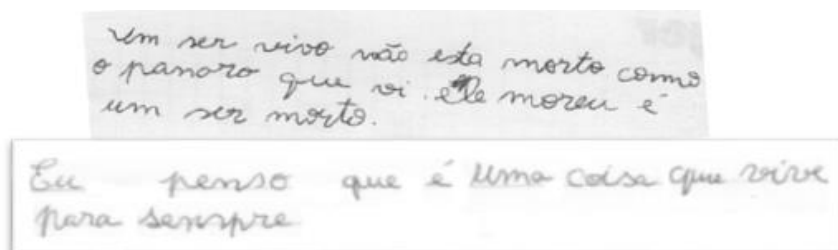 um ser vivo não esta morto como
o panaro que vi. ele moreu é
um ser morto.
Eu penso que é uma coisa que vive
para senspre